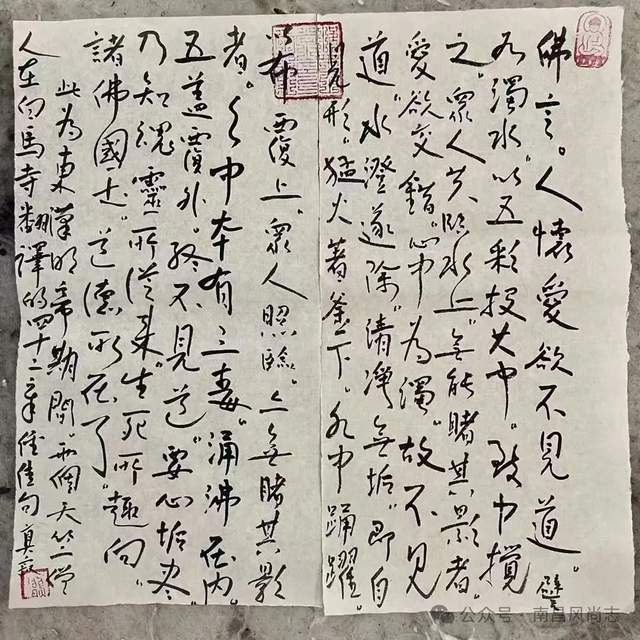 佛言。人懷愛欲不見道。譬
如濁水。以五彩投其中。致力攪
之。眾人共臨水上。無能睹其影者。
愛欲交錯。心中為濁。故不見
道。水澄遂除。清净無垢。即自
見形。猛火著釜下。水中踊躍。
以布覆上。眾人照臨。亦無睹其影
者。心中本有三毒。涌沸在内
五蓋覆外。終不見道。要心垢盡。
乃知魂靈所從来。生死所趣向。
諸佛國土。道德所在了。
此為東漢明帝期間。兩個天竺僧
人在白馬寺翻譯的四十二章經佳句
公众号 · 南昌风尚志